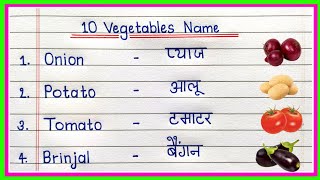 10 Vegetables Name
1. Onion - प्याज
2. Potato - आलू
3. Tomato - टमाटर
4. Brinjal - बैंगन